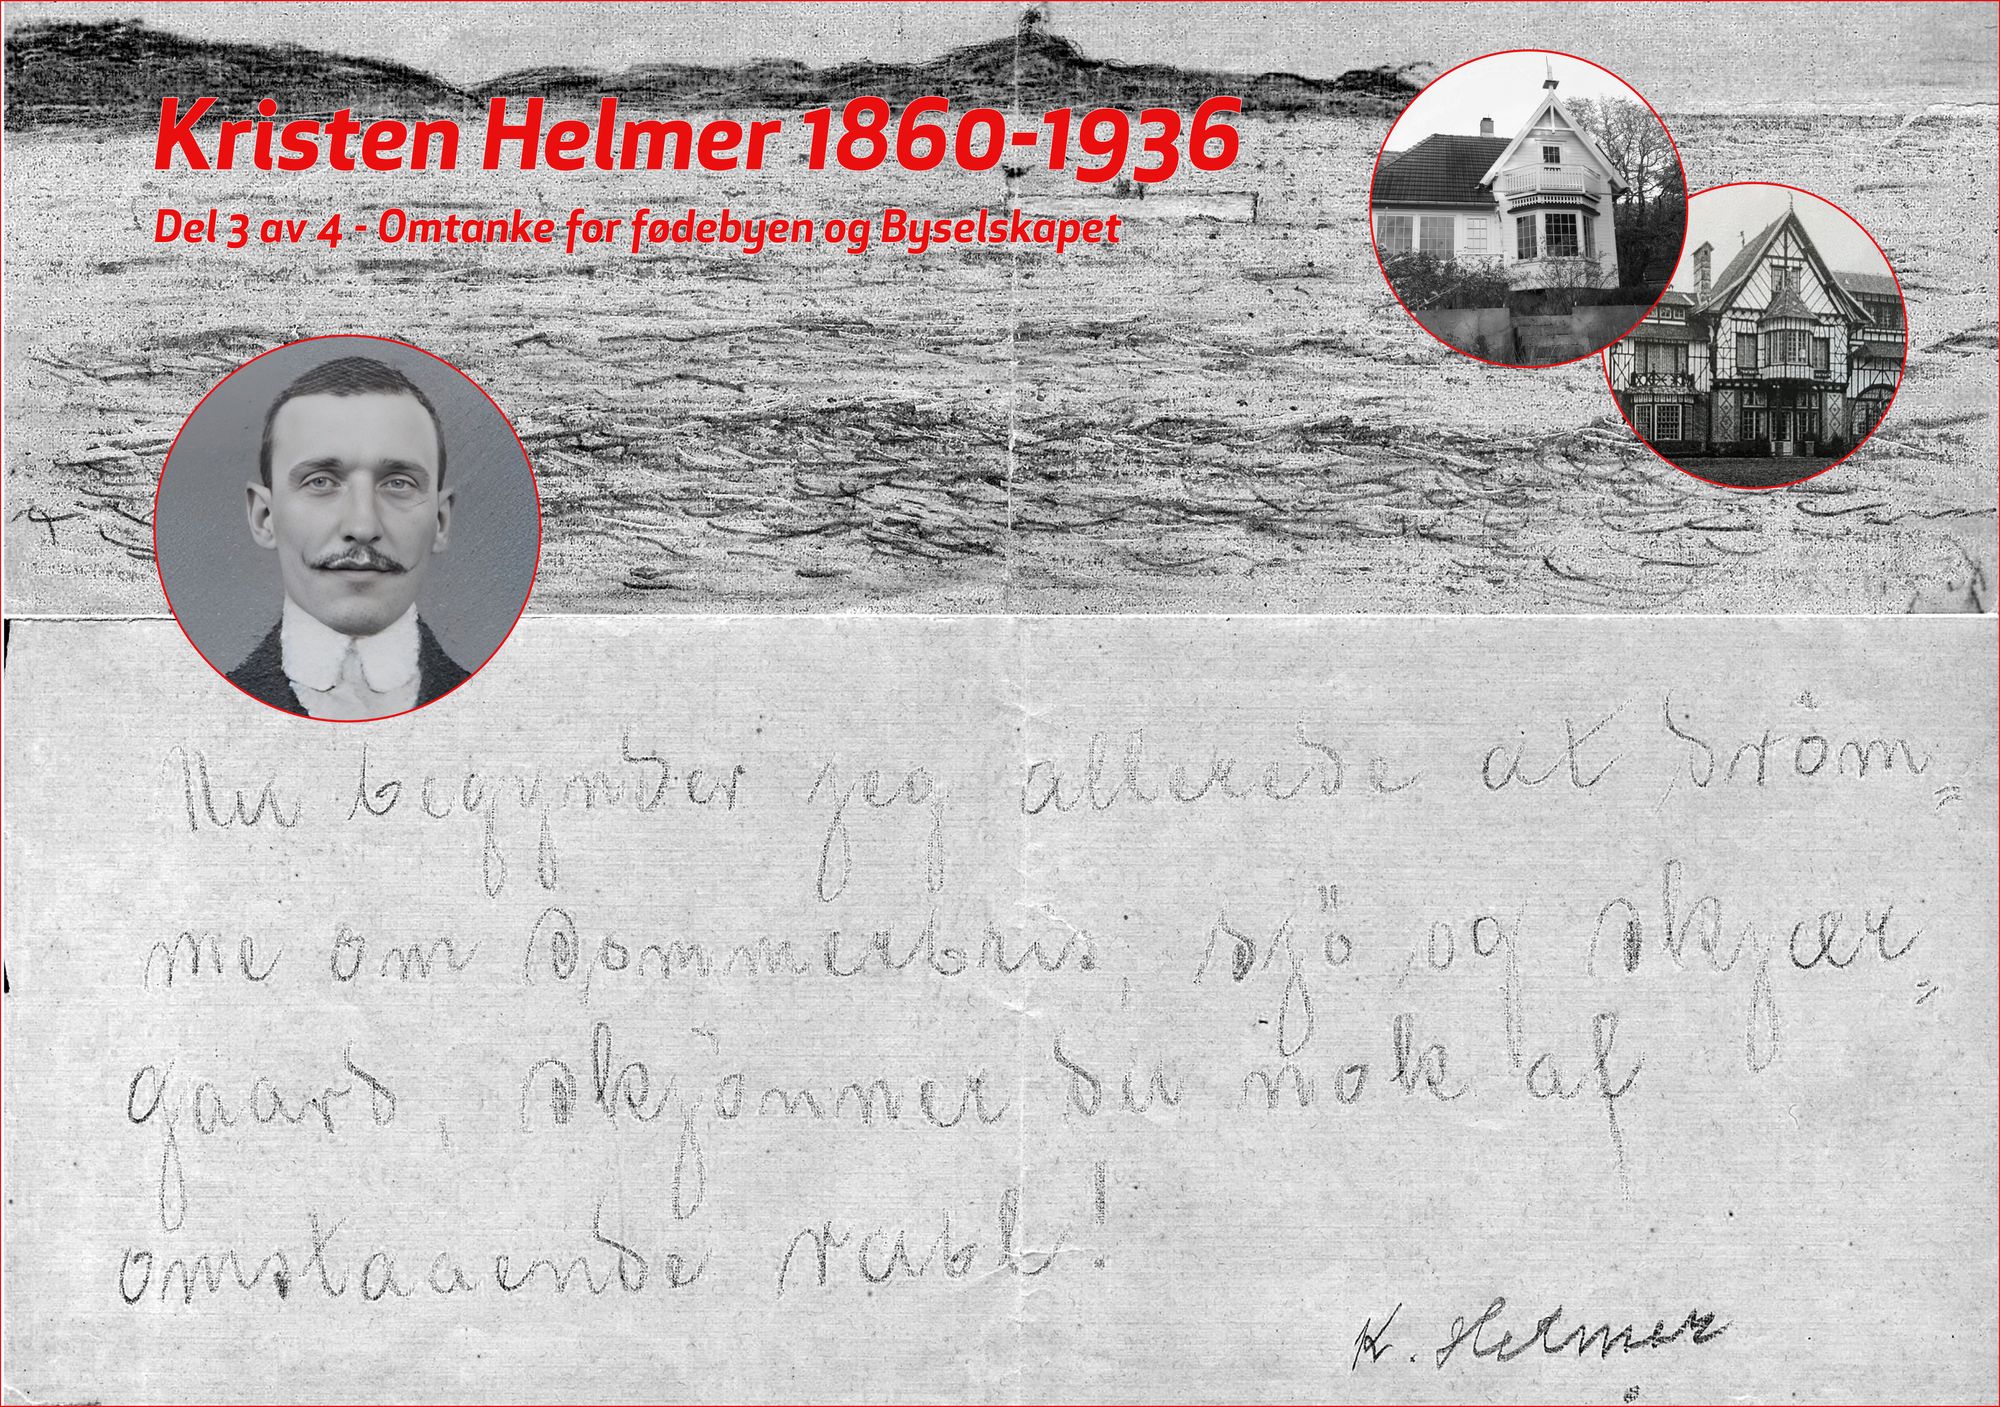 Kristen Helmer 1860-1936
Del 3 av 4 - Omtanke for fødebyen og Byselskapet
Nu begynder jeg allerede at dröm=
me om Sommerbris, sjö og skjær=
gaard, skjönner du nok af
omstaaende rabl!
K. Helmer